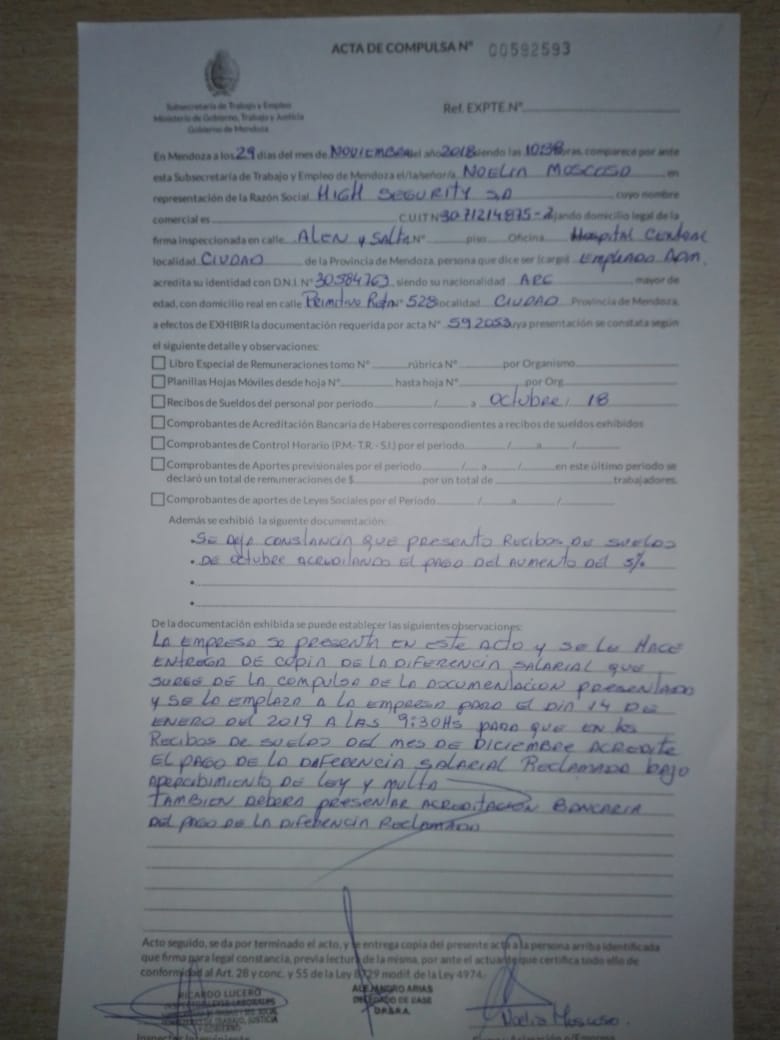 ACTA DE COMPULSA Nº 00592593
Subsecretaría de Trabajo y Empleo
Ministerio de Gobierno, Trabajo y Justicia
Gobierno de Mendoza
Ref. EXPTE. Nº
En Mendoza a los 29 días del mes de NOVIEMBRE del año 2018 siendo las 10:38 horas, comparece por ante
esta Subsecretaría de Trabajo y Empleo de Mendoza el/la señor/a. NOELIA MOSCOSO en
representación de la Razón Social HIGH SEGURITY SA cuyo nombre
comercial es C.U.I.T Nº 3071214875- fijando domicilio legal de la
firma inspeccionada en calle ALEN y SALTA Nº piso Oficina Hospital Central
localidad CIUDAD de la Provincia de Mendoza, persona que dice ser (cargo) Empleado ADM.
acredita su identidad con D.N.I. Nº 30584763 siendo su nacionalidad ARG mayor de
edad, con domicilio real en calle Primitivo Nº 528 localidad CIUDAD Provincia de Mendoza,
a efectos de EXHIBIR la documentación requerida por acta Nº 592053 cuya presentación se constata según
el siguiente detalle y observaciones:
Libro Especial de Remuneraciones tomo Nº rúbrica Nº por Organismo
Planillas Hojas Móviles desde hoja Nº hasta hoja Nº por Org
Recibos de Sueldos del personal por periodo / a Octubre / 18
Comprobantes de Acreditación Bancaria de Haberes correspondientes a recibos de sueldos exhibidos
Comprobantes de Control Horario (P.M.- T.R. - S.I.) por el periodo / a /
Comprobantes de Aportes previsionales por el periodo / a / en este último periodo se
declaró un total de remuneraciones de $ por un total de trabajadores.
Comprobantes de aportes de Leyes Sociales por el Periodo / a /
Además se exhibió la siguente documentación:
• SE DEJA CONSTANCIA QUE PRESENTO RECIBOS DE SUELDOS
• DE OCTUBRE ACREDITANDO EL PAGO DEL AUMENTO DEL 5%
•
•
De la documentación exhibida se puede establecer las siguientes observaciones:
LA EMPRESA SE PRESENTA EN ESTE ACTO Y SE LE HACE
ENTREGA DE COPIA DE LA DIFERENCIA SALARIAL QUE
SURGE DE LA COMPULSA DE LA DOCUMENTACION PRESENTADO
Y SE LA EMPLAZA A LA EMPRESA PARA EL DIA 14 DE
ENERO DEL 2019 A LAS 9:30HS PARA QUE EN LOS
RECIBOS DE SUELDOS DEL MES DE DICIEMBRE ACREDITE
EL PAGO DE LA DIFERENCIA SALARIAL RECLAMADA BAJO
APERCIBIMIENTO DE LEY Y MULTA
TAMBIEN DEBERA PRESENTAR ACREDITACION BANCARIA
DEL PAGO DE LA DIFERENCIA RECLAMADO
Acto seguido, se da por terminado el acto, y se entrega copia del presente acta a la persona arriba identificada
que firma para legal constancia, previa lectura de la misma, por ante el actuante que certifica todo ello de
conformidad al Art. 28 y conc. y 55 de la Ley 8729 modif. de la Ley 4974.-
RICARDO LUCERO
INSPECTOR LEYES LABORALES
MINISTERIO DE TRABAJO, JUSTICIA
Y GOBIERNO
ALEJANDRO ARIAS
DELEGADO DE BASE
Noelia Moscoso.
Inspector Interviniente